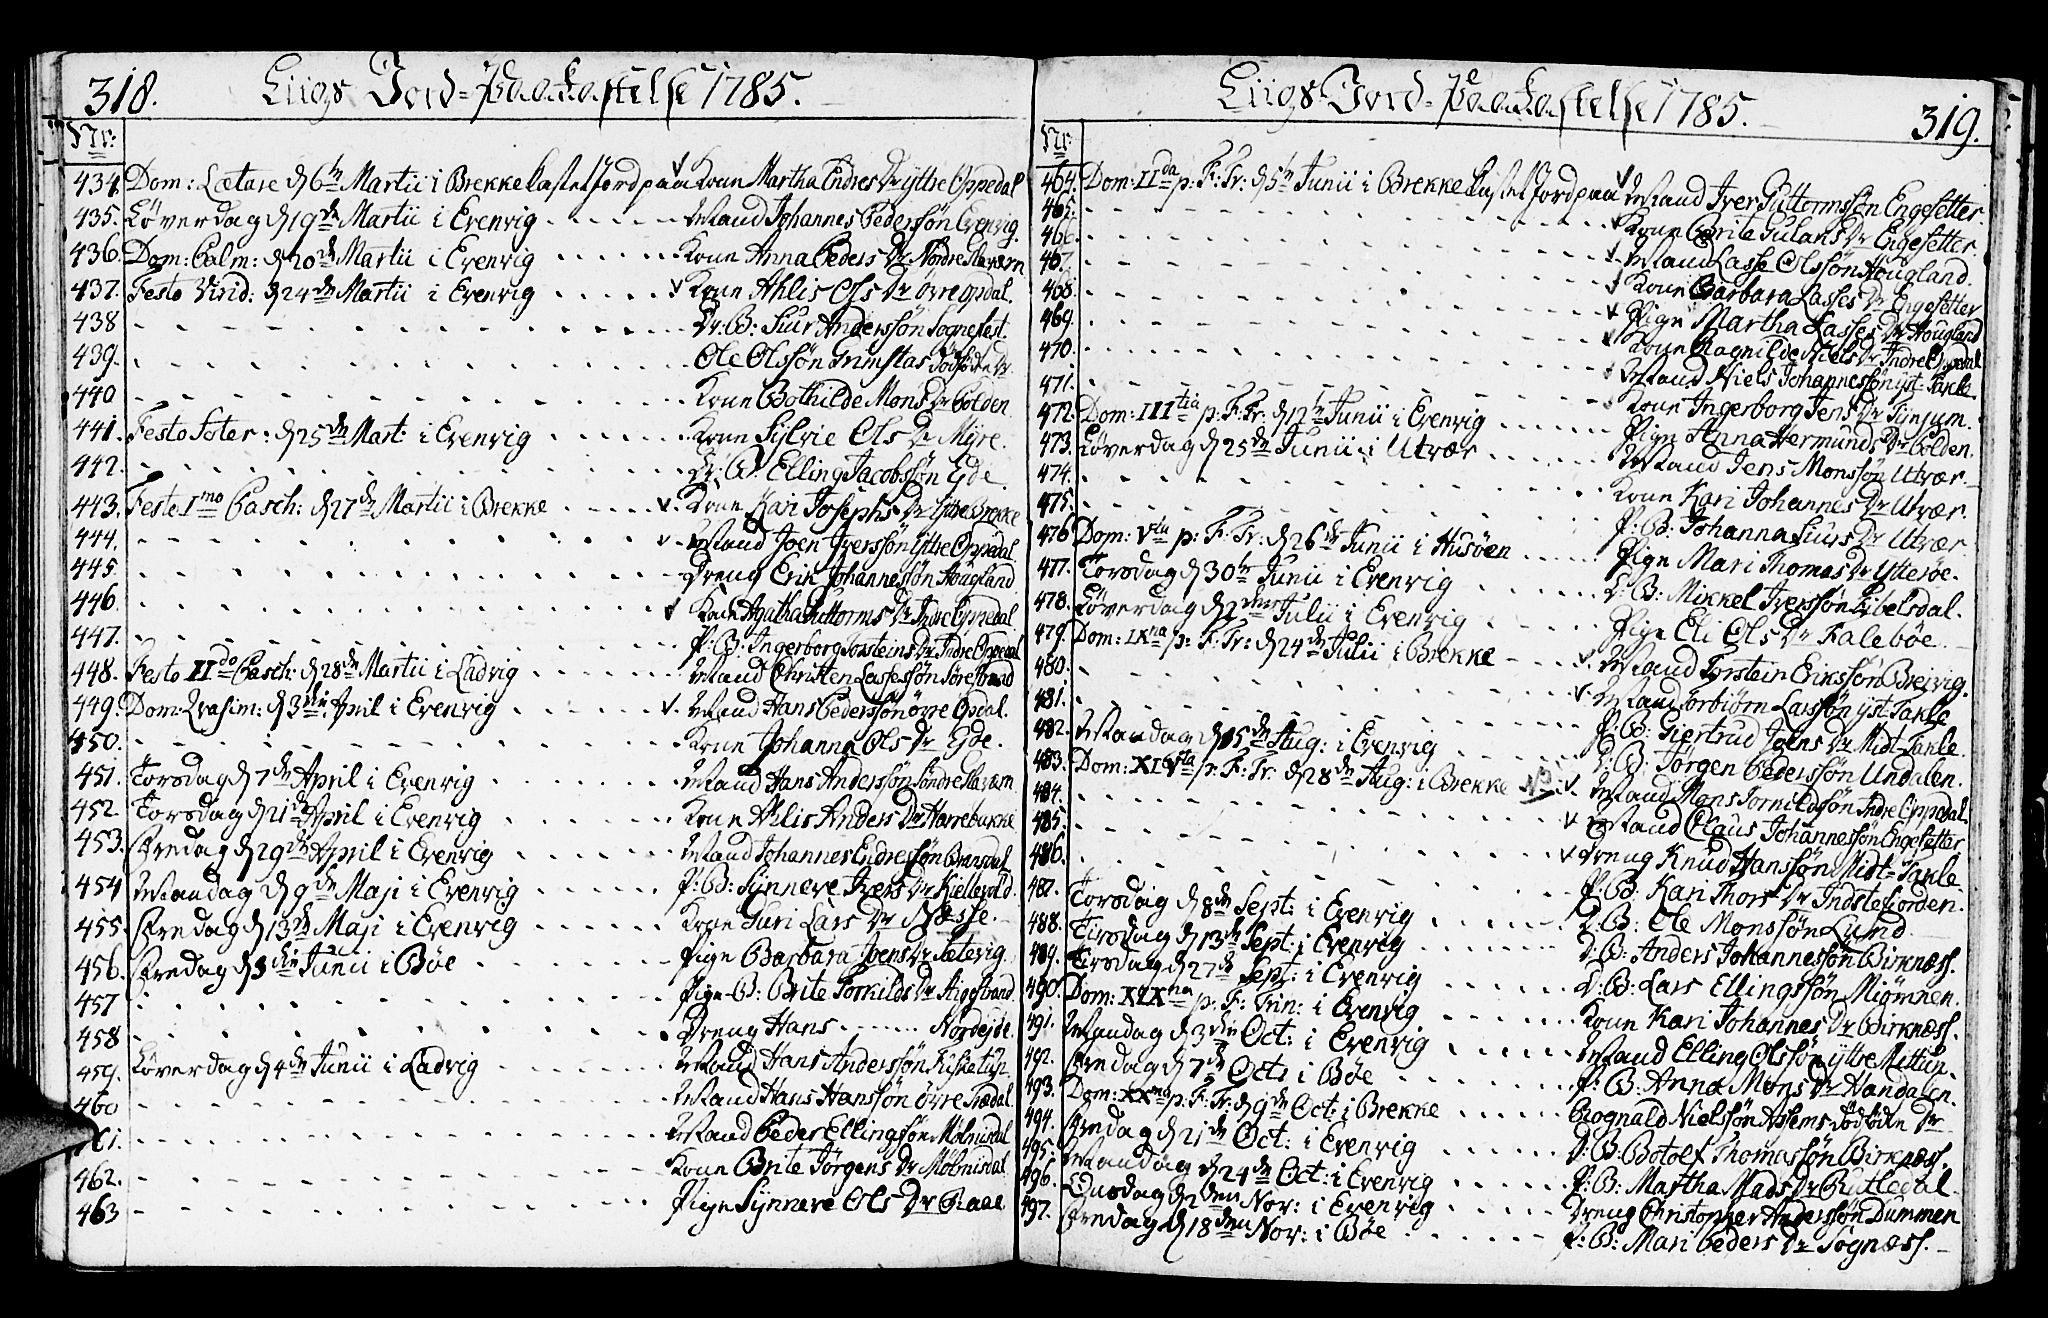 318. Liigs Jord-Paakastelse 1785.
Nr:
434. Dom: Lætare d 6te Martii i Brekke kastet Jord paa v Kone Martha Endres Dr yttre Oppedal
435. Løverdag d 19de Martii i Evenvig - - - - - Mand Johannes Pederssøn Evenvig.
436. Dom: Palm: d 20de Martii i Evenvig - - - - - Kone Anna Peders Dr Nordre Haværn
437. Festo Virid: d 24de Martii i Evenvig - - - - - v Kone Ahlis Ols Dr øvre opdal.
438 - - - - - Dr: B: Siur Anderssøn Sognefest.
439. - - - - - Ole Olssøn Grimstas dødfødte Dr
440 - - - - - Kone Bothilde Mons Dr Bolden
441. Festo Soter: d 25de Mart: i Evenvig - - - - - Kone Sylvie Ols Dr Myre.
442. - - - - - Dr: B: Elling Jacobssøn Eide
443. Festo Imo Pasch: d 27de Martii i Brekke - - - - - v. Kone Kari Josephs Dr Yttre Brekke
444. - - - - - v. Mand Joen Iverssøn Yttre Oppedal
445. - - - - - Dreng Erik Johannessøn Hougland
446. - - - - - v Kone Agatha Guttorms Dr Indre Oppedal
447. - - - - - P: B: Ingerborg Torsteins Dr Indre Oppedal
448. Festo IIdo Pasch: d 28de Martii i Ladvig - - - - - Mand Christen Lassessøn Sørestrand
449. Dom: Qvasim: d 3die April i Evenvig - - - - - v. Mand Hans Pederssøn øvre Opdal.
450. - - - - - Kone Johanna Ols Dr Eide.
451. Torsdag d 7de April i Evenvig - - - - - Mand Hans Anderssøn Søndre Haværn
452. Torsdag d 21de April i Evenvig - - - - - Kone Ahlis Anders Dr Harrebakke
453. Fredag d 29de April i Evenvig - - - - - Mand Johannes Endressøn Bransdal
454 Mandag d 9de Maji i Evenvig - - - - - P: B: Synneve Ivers Dr Kiellevold.
455. Fredag d 13de Maji i Evenvig - - - - - Kone Guri Lars Dr Næsse.
456. Fredag d 3die Junii i Bøe - - - - - Pige Barbara Joens Dr Sætevig
457 - - - - - Pige-B: Brite Torkilds Dr Aigestrand
458 - - - - - Dreng Hans - - - - - Nordejde.
459. Løverdag d 4de Junii i Ladvig - - - - - Mand Hans Anderssøn Kirketeig.
460 - - - - - Mand Hans Hanssøn øvre Trædal.
- - - - - Mand Peder Ellingssøn Mølmisdal
462. - - - - - Kone Brite Jørgens Dr Mølmisdal
463 - - - - - Pige Synneve Ols Dr Raae
Liigs Jord-Paakastelse 1785. 319.
Nr:
464. Dom: IIda p: F: Tr: d 5te Junii i Brekke kastet Jord paa v Mand Iver Guttormssøn Engesetter
465. - - - - - v Kone Brita Gulaks Dr Engesetter
466. - - - - - v Mand Lasse Olssøn Hougland.
467. - - - - - v Kone Barbara Lasses Dr Engesetter
468. - - - - - v Pige Martha Lasses Dr Hougland
469. - - - - - v Kone Ragnilde Niels Dr Indre Oppedal
470. - - - - - v Mand Niels Johannessøn yst-Takle
471. - - - - - Kone Ingerborg Jens Dr Tynjum.
472. Dom: IIItia p: F: Tr: d 12te Junii i Evenvig - - - - - Pige Anna Hermunds Dr Bolden.
473. Løverdag d 25de Junii i Utvær - - - - - Mand Jens Monssøn Utvær
474. - - - - - Kone Kari Johannes Dr Utvær.
475. - - - - - P: B: Johanna Siurs Dr Utvær
476 Dom: Vta p: F: Tr: d 26de Junii i Husøen - - - - - Pige Mari Thomas Dr Ytterøe.
477. Torsdag d 30te Junii i Evenvig - - - - - D: B: Mikkel Iverssøn Libelsdal.
478. Løverdag d 2den Julii i Evenvig - - - - - Pige Eli Ols Dr Falebøe
479. Dom: IXna p: F: Tr: d 24de Julii i Brekke - - - - - v. Mand Torstein Erikssøn Breivig.
480. - - - - - v. Mand Torbiørn Larssøn yst-Takle
481. - - - - - P: B: Giertrud Joens Dr Midt-Takle
482. Mandag d 15de Aug: i Evenvig - - - - - D: B: Jørgen Pederssøn Undalen.
483. Dom: XIVta p: F: Tr: d 28de Aug: i Brekke NB: v. Mand Mons Tornildssøn Indre Oppedal
484. - - - - - v Mand Claus Johannessøn Engesetter
485. - - - - - v Dreng Knud Hanssøn Midt-Takle
486. - - - - - P: B: Kari Thors Dr Indstefiorden.
487. Torsdag d 8de Sept: i Evenvig - - - - - D: B: Ole Monssøn Lund
488. Tirsdag d 13de Sept: i Evenvig - - - - - D: B: Anders Johannessøn Birknæss.
489. Tirsdag d 27de Sept: i Evenvig - - - - - D: B: Lars Ellingssøn Miømnen.
490. Dom: XIXna p: F: Trin: i Evenvig - - - - - Kone Kari Johannes Dr Birknæss.
491. Mandag d 3die Oct: i Evenvig - - - - - Mand Elling Olssøn yttre Mettun.
492. Fredag d 7de Oct: i Bøe - - - - - P: B: Anna Mons Dr Handalen.
493. Dom: XXma p: F: Tr: d 9de Oct: i Brekke - - - - - Rognald Nielssøn Asems dødfødte Dr
494. Fredag d 21de Oct: i Evenvig - - - - - D: B: Botolf Thomassøn Birknæss.
495. Mandag d 24de Oct: i Evenvig - - - - - P: B: Martha Mads Dr Rutledal
496. Onsdag d 2den Nov: i Evenvig - - - - - Dreng Christopher Anderssøn Dummen
497. Fredag d 18den Nov: i Bøe - - - - - P: B: Mari Peders Dr Sognæss.